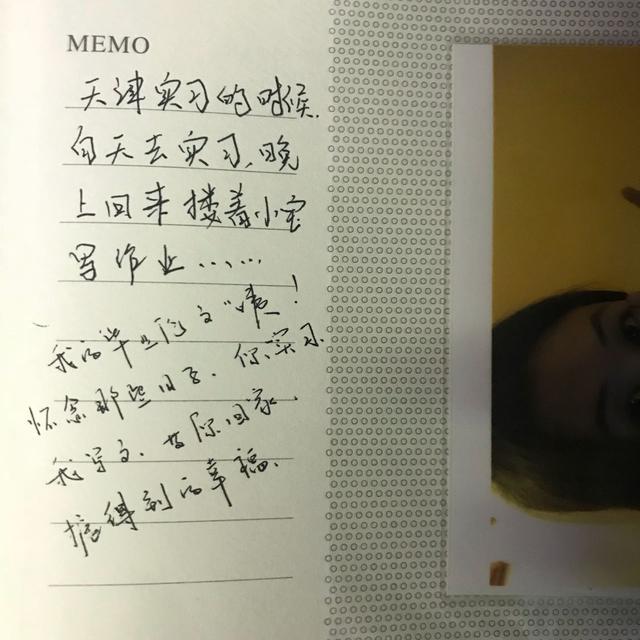 MEMO
天津实习的时候.
白天去实习、晚
上回来搂着小宝
写作业……
我的毕业论文"咦！
怀念那些日子. 你实习.
我写文. 等你回家.
搞得到的幸福.